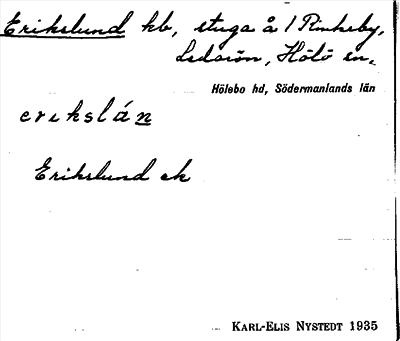 Erikslund hb, stuga å 1 Rinkeby,
Ledarön, Hölö sn,
Hölebo hd, Södermanlands län
erikslán
Erikslund ek
KARL-ELIS NYSTEDT 1935